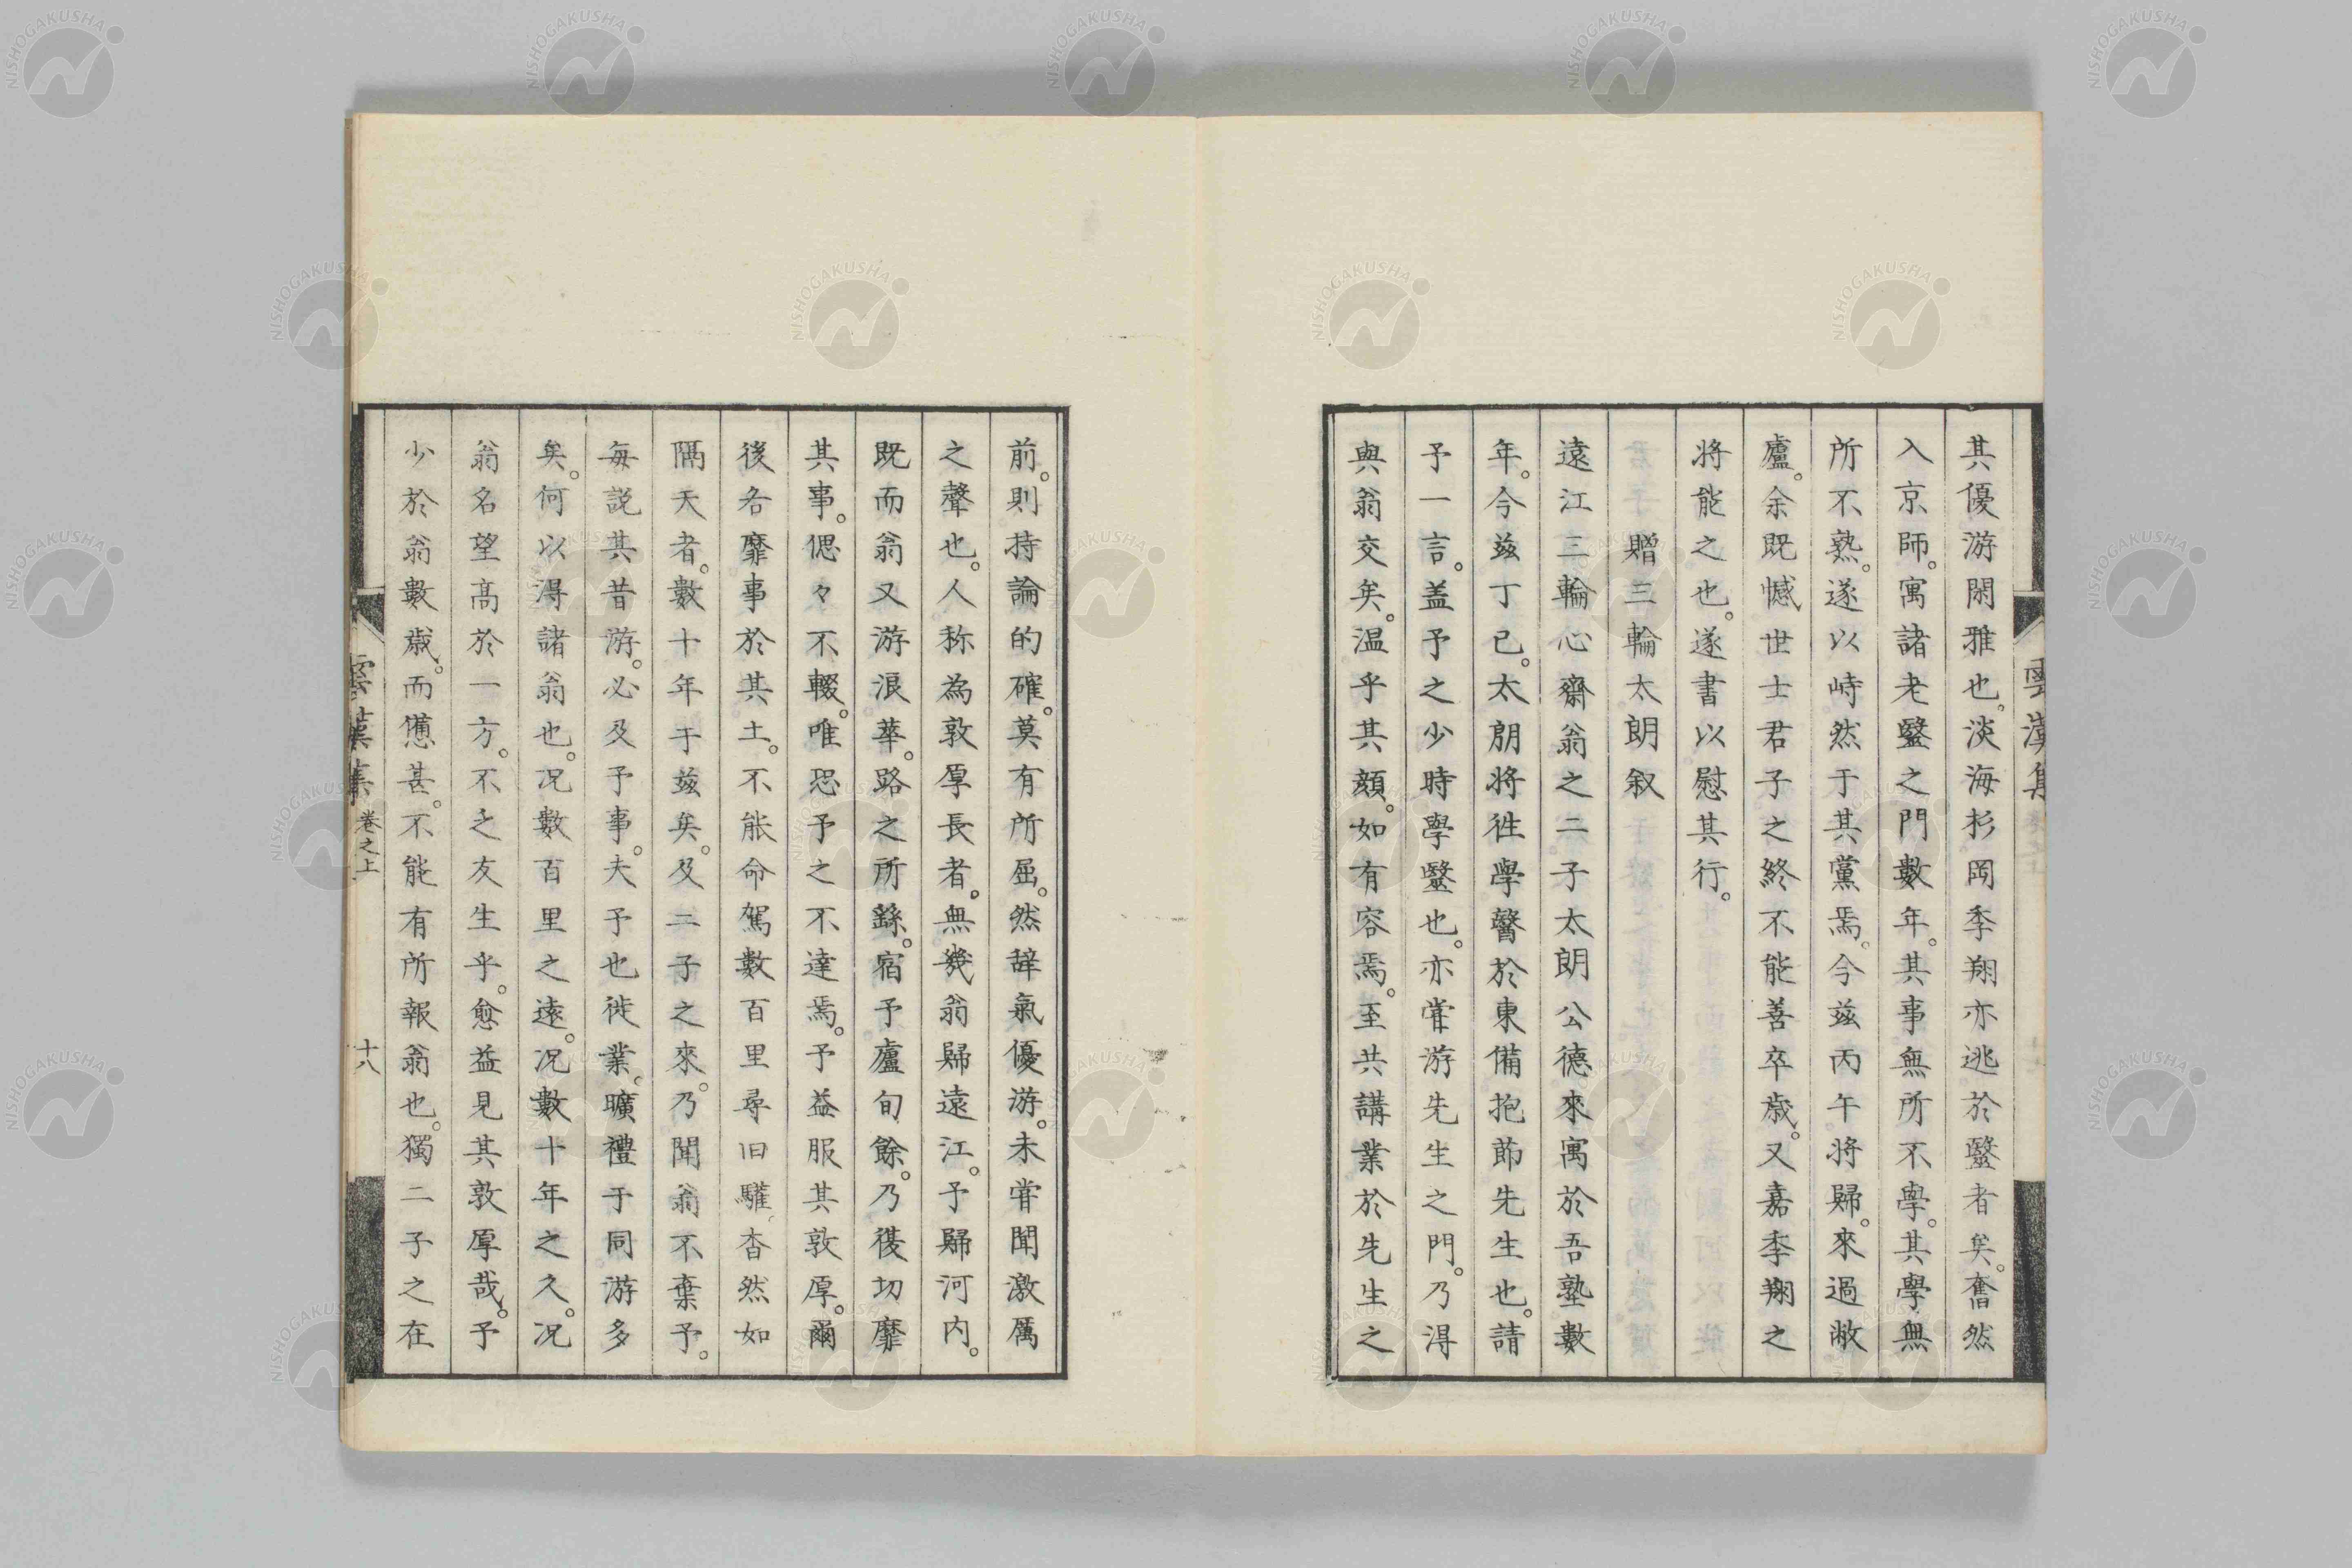 其優游閑雅也。淡海杉岡季翔亦逃於毉者矣。奮然
入京師。寓諸老毉之門數年。其事無所不學。其學無
所不熟。遂以峙然于其黨焉。今兹丙午將歸。來過敝
廬。余既憾世士君子之終不能善卒歳。又嘉季翔之
将能之也。遂書以慰其行。
贈三輪太朗叙
遠江三輪心齋翁之二子太朗公德來寓於吾塾數
年。今兹丁巳。太朗将徃學醫於東備抱節先生也。請
予一言。盖予之少時學毉也。亦甞游先生之門。乃得
與翁交矣。温乎其顔。如有容焉。至共講業於先生之
前。則持論的確。莫有所屈。然辭氣優游。未甞聞激厲
之聲也。人称為敦厚長者。無幾翁歸遠江。予歸河内。
既而翁又游浪華。路之所繇。宿予廬旬餘。乃復切靡
其事。偲々不輟。唯恐予之不達焉。予益服其敦厚。爾
後各靡事於其土。不能命駕數百里尋旧驩、杳然如
隔天者。數十年于兹矣。及二子之來。乃聞翁不棄予。
毎説其昔游。必及予事。夫予也徙業。曠禮于同游多
矣。何以得諸翁也。况數百里之遠。况數十年之久。况
翁名望高於一方。不乏友生乎。愈益見其敦厚哉。予
少於翁數歳。而憊甚。不能有所報翁也。獨二子之在
雲漢集 卷之上 十八
雲漢集